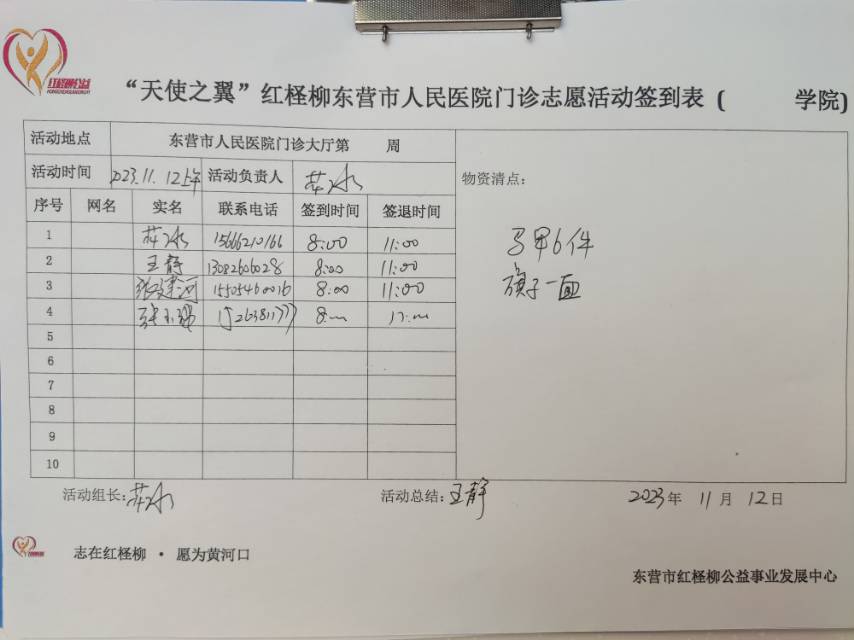 红柽柳公益
“天使之翼”红柽柳东营市人民医院门诊志愿活动签到表(　　　学院)
活动地点 东营市人民医院门诊大厅第　　周
活动时间 2023.11.12上午 活动负责人
物资清点:
序号 网名 实名 联系电话 签到时间 签退时间
1 15666210166 8:00 11:00
2 王静 13082606028 8:00 11:00
3 张建河 15505460016 8:00 11:00
4 15263811777 8:
5
6
7
8
9
10
马甲6件
旗子一面
活动组长: 活动总结:王静 2023年 11月 12日
志在红柽柳 · 愿为黄河口
东营市红柽柳公益事业发展中心